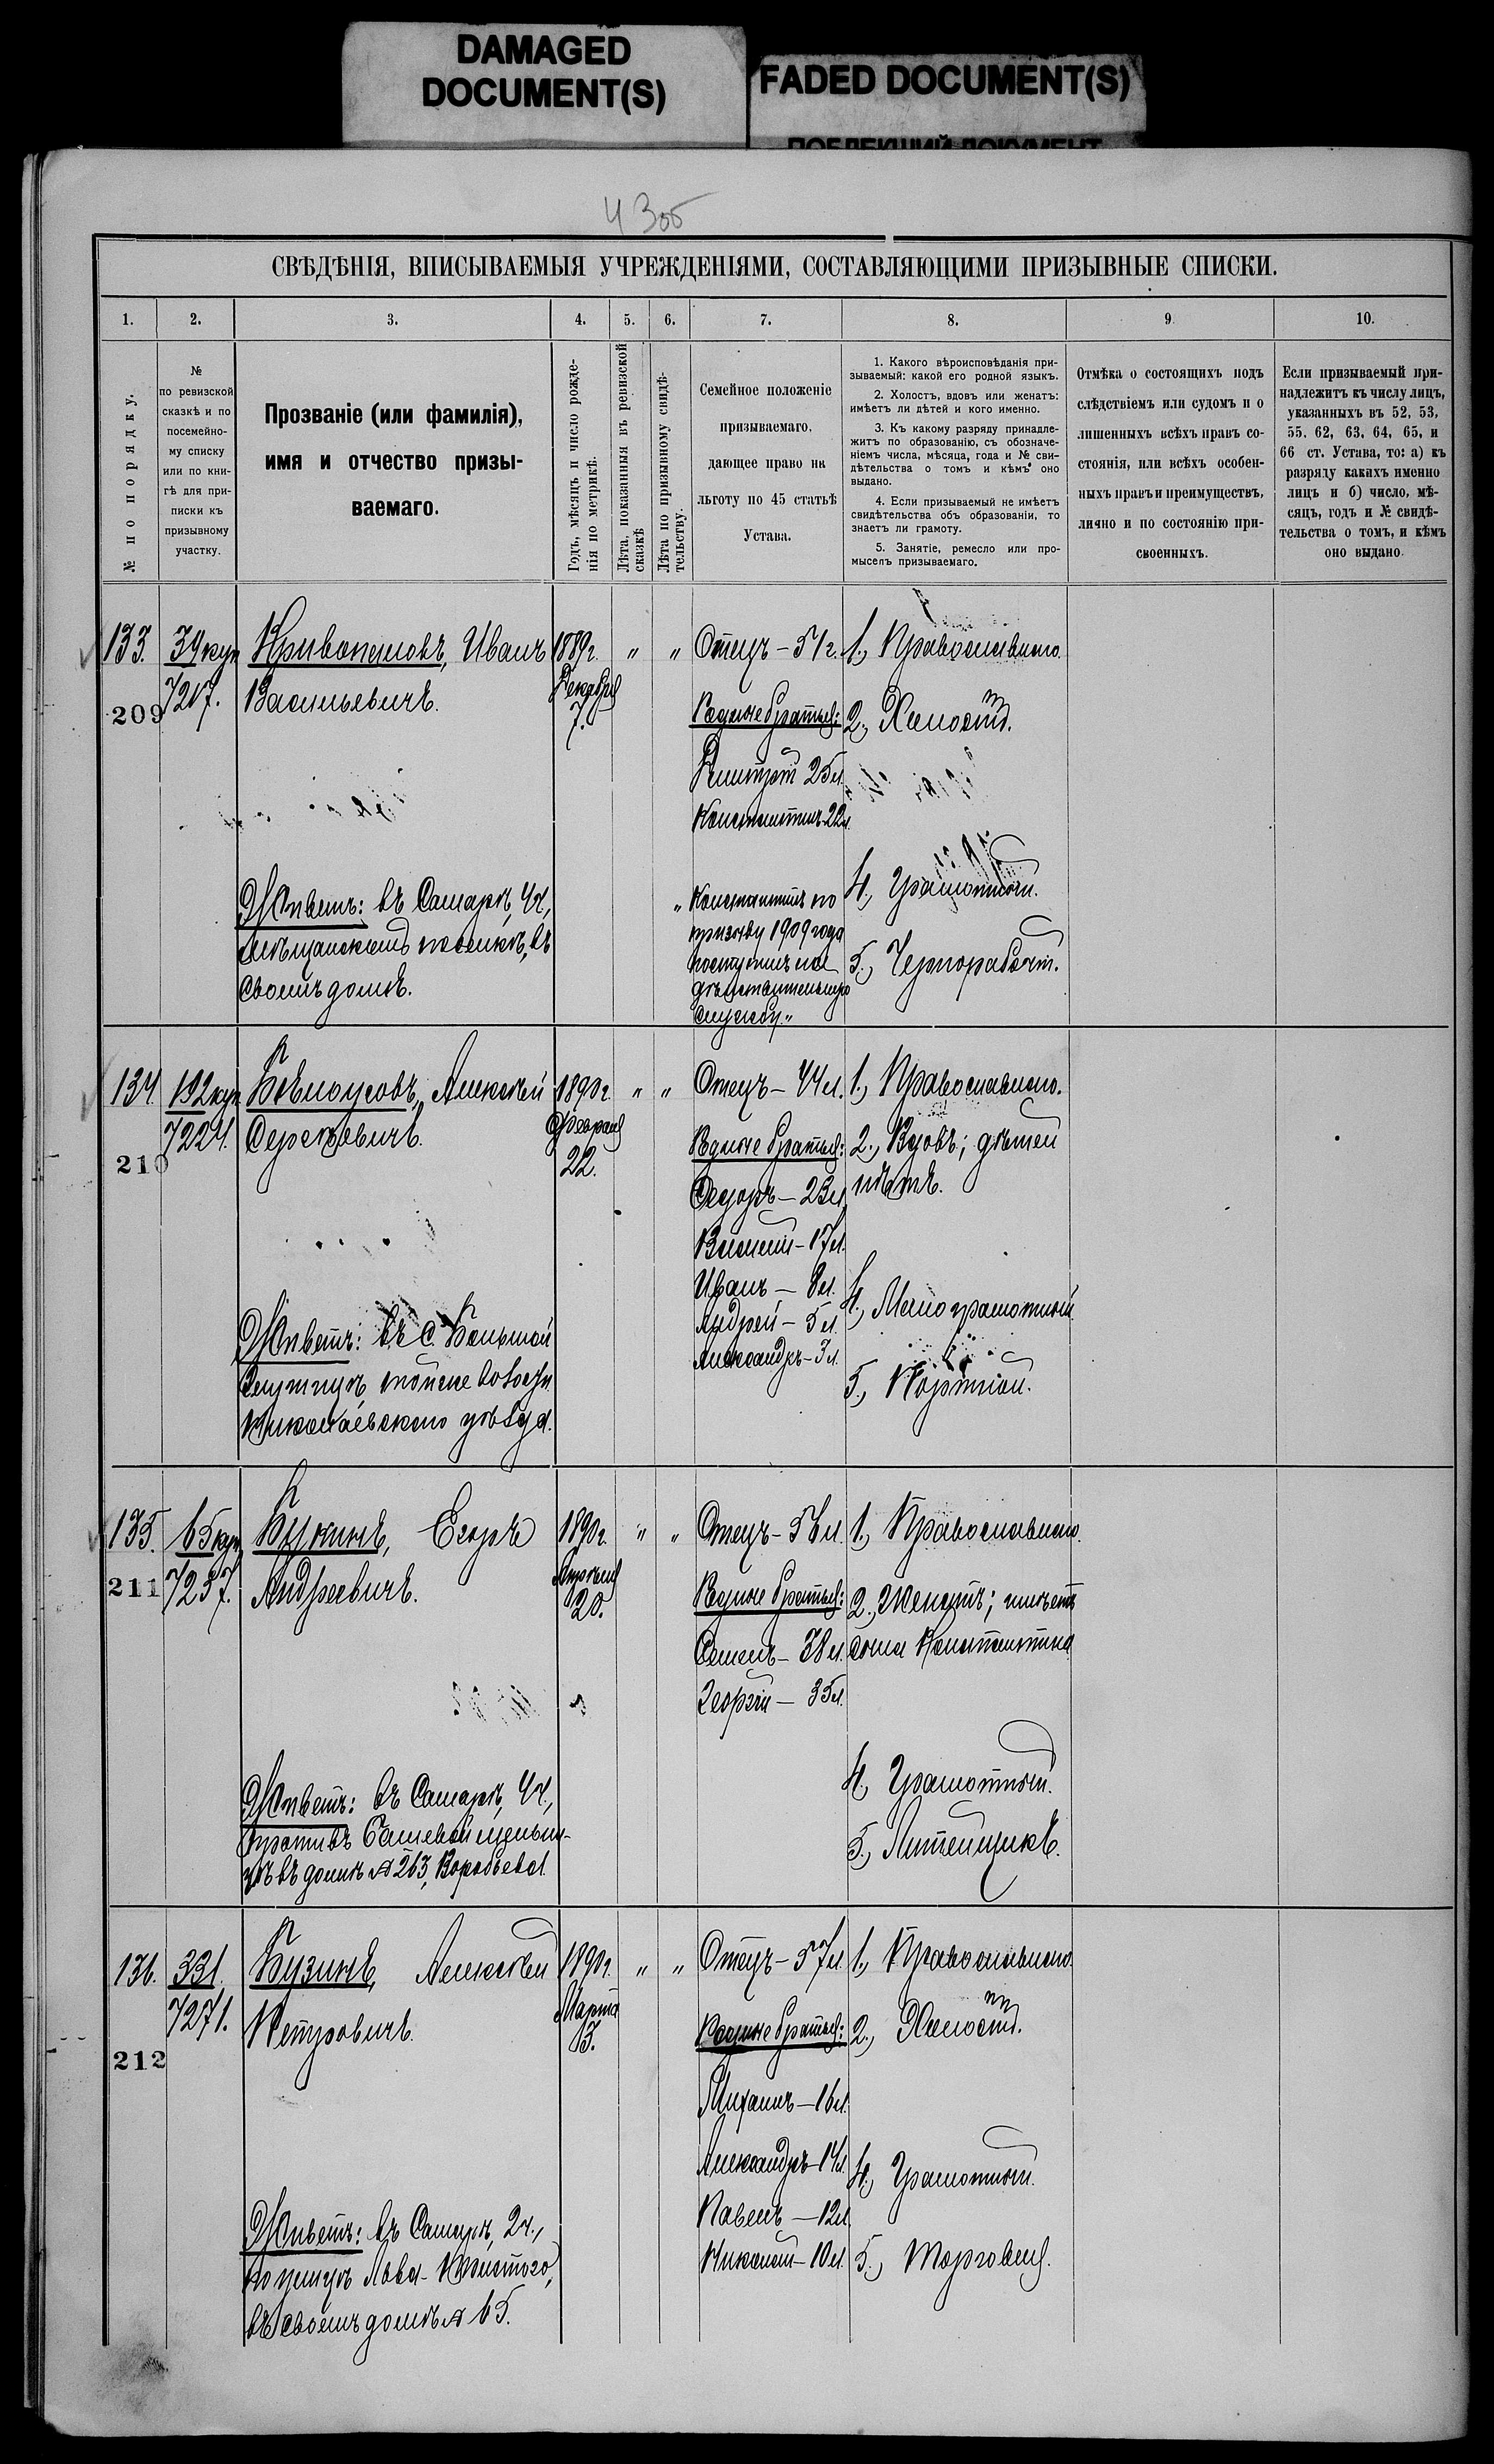 DAMAGED
DOCUMENT(S)
FADED DOCUMENT(S)
ПОБЛЕКШИЙ ДОКУМЕНТ
43об
СВѢДѢНІЯ, ВПИСЫВАЕМЫЯ УЧРЕЖДЕНІЯМИ, СОСТАВЛЯЮЩИМИ ПРИЗЫВНЫЕ СПИСКИ.
1. 2. 3. 4. 5. 6. 7. 8. 9. 10.
№ по порядку.
№
по ревизской
сказкѣ и по
посемейно-
му списку
или по кни-
гѣ для при-
писки къ
призывному
участку.
Прозваніе (или фамилія),
имя и отчество призы-
ваемаго.
Годъ, мѣсяцъ и число рожде-
нія по метрикѣ.
Лѣта, показанныя въ ревизской
сказкѣ
Лѣта по призывному свидѣ-
тельству.
Семейное положеніе
призываемаго,
дающее право на
льготу по 45 статьѣ
Устава.
1. Какого вѣроисповѣданія при-
зываемый: какой его родной языкъ.
2. Холостъ, вдовъ или женатъ:
имѣетъ ли дѣтей и кого именно.
3. Къ какому разряду принадле-
житъ по образованію, съ обозначе-
ніемъ числа, мѣсяца, года и № сви-
дѣтельства о томъ и кѣмъ оно
выдано.
4. Если призываемый не имѣетъ
свидѣтельства объ образованіи, то
знаетъ ли грамоту.
5. Занятіе, ремесло или про-
мыселъ призываемаго.
Отмѣка о состоящихъ подъ
слѣдствіемъ или судомъ и о
лишенныхъ всѣхъ правъ со-
стоянія, или всѣхъ особен-
ныхъ правъ и преимуществъ,
лично и по состоянію при-
своенныхъ.
Если призываемый при-
надлежитъ къ числу лицъ,
указанныхъ въ 52, 53,
55, 62, 63, 64, 65, и
66 ст. Устава, то: а) къ
разряду какихъ именно
лицъ и б) число, мѣ-
сяцъ, годъ и № свидѣ-
тельства о томъ, и кѣмъ
оно выдано.
133.
209
39 куп
7217.
Кривопаловъ, Иванъ
Васильевичъ.
Живетъ: въ Самарѣ, 4ч.,
мѣщанскомъ поселкѣ, въ
своемъ домѣ.
1889г.
Декабря
7.
" "
Отецъ – 51 г.
Родные братья:
Дмитрій 25 л.
Константинъ 22 л.
" Константинъ по
призыву 1909 года
поступилъ на
дѣйствительную
службу."
1., Православнаго.
2., Холостъ.
4., Грамотный.
5., Чернорабоч.
134.
210
192 куп
7224.
Бѣлоусовъ, Алексѣй
Сергѣевичъ.
Живетъ: въ с. Большой
Глушицѣ тойже волости
Николаевскаго уѣзда.
1890г.
Февраля
22.
" "
Отецъ – 44 л.
Родные братья:
Федоръ – 23 л.
Василій – 17 л.
Иванъ – 8 л.
Андрей – 5 л.
Александръ – 3 л.
1., Православнаго.
2., Вдовъ; дѣтей
нѣтъ.
4., Малограмотный
5., Портной.
135.
211
65 куп
7237.
Букинъ, Егоръ
Андреевичъ.
Живетъ: въ Самарѣ, 4ч.,
противъ Башевой мельни-
цы въ домѣ № 263, Воробьева.
1890г.
Апрѣля
20.
" "
Отецъ – 56 л.
Родные братья:
Семенъ – 38 л.
Георгій – 35 л.
1., Православнаго.
2., Женатъ; имѣетъ
сына Константина
4., Грамотный.
5., Литейщикъ.
136.
212
331.
7271.
Бузинъ, Алексѣй
Петровичъ.
Живетъ: въ Самарѣ, 2ч.,
по улицѣ Льва-Толстого,
въ своемъ домѣ № 65.
1890г.
Марта
15.
" "
Отецъ – 57 л.
Родные братья:
Михаилъ – 16 л.
Александръ – 14 л.
Павелъ – 12 л.
Николай – 10 л.
1., Православнаго.
2., Холостъ.
4., Грамотный.
5., Торговля.